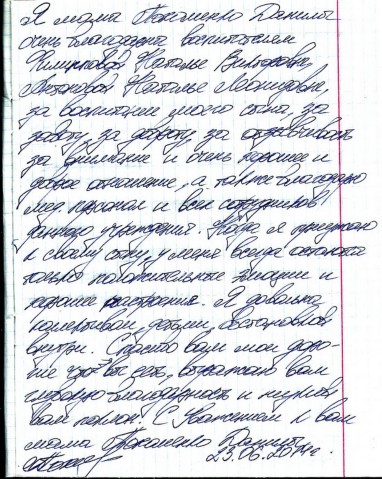 Я мама Пасоменко Данилы
очень благодарна воспитателям
Наталье Викторовне,
Антоновой Наталье Леонидовне,
за воспитание моего сына, за
заботу, за доброту, за отзывчивость
за внимание и очень хорошее и
доброе отношение, а также благодарю
мед персонал и всех сотрудников
данного учреждения. Когда я приезжаю
к своему сыну, у меня всегда остаются
только положительные эмоции и
хорошее настроение. Я довольна
детьми, обстановкой
внутри. Спасибо вам мои доро-
гие что вы есть, выражаю вам
глубокую благодарность и низкий
вам поклон. С Уважением к вам
мама Данилы
23.06.2014г.